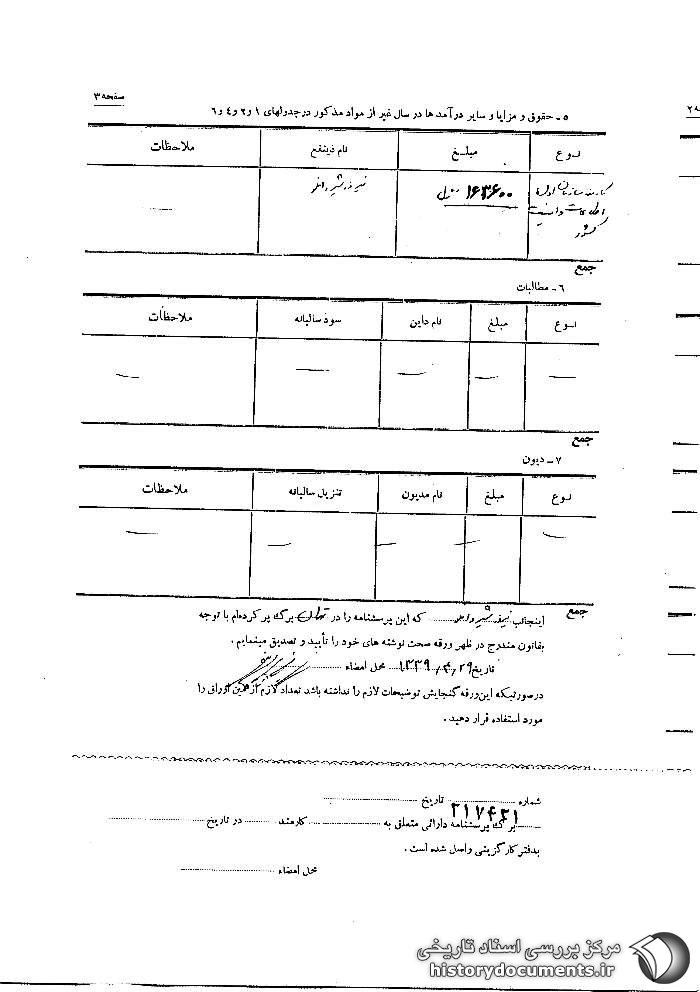 صفحه ۳
۵ - حقوق و مزایا و سایر درآمدها در سال غیر از مواد مذکور در جدولهای ۱ و ۲ و ٤ و ٦
نوع مبلغ نام ذینفع ملاحظات
کارمند سازمان
اطلاعات و امنیت
کشور
۱۶۳۶۰۰
جمع
٦ - مطالبات
نوع مبلغ نام داین سود سالیانه ملاحظات
جمع
۷ - دیون
نوع مبلغ نام مدیون تنزیل سالیانه ملاحظات
جمع
اینجانب که این پرسشنامه را در تهران برگ پر کرده‌ام با توجه
بقانون مندرج در ظهر ورقه صحت نوشته های خود را تأیید و تصدیق مینمایم .
تاریخ ۱۳۳۹/۴/۲۹ محل امضاء
درصورتیکه این ورقه گنجایش توضیحات لازم را نداشته باشد تعداد لازم از همین اوراق را
مورد استفاده قرار دهید .
شماره تاریخ
۲۱۷۴۲۱
برگ پرسشنامه دارائی متعلق به کارمند در تاریخ
بدفتر کارگزینی واصل شده است .
محل امضاء
مرکز بررسی اسناد تاریخی
historydocuments.ir